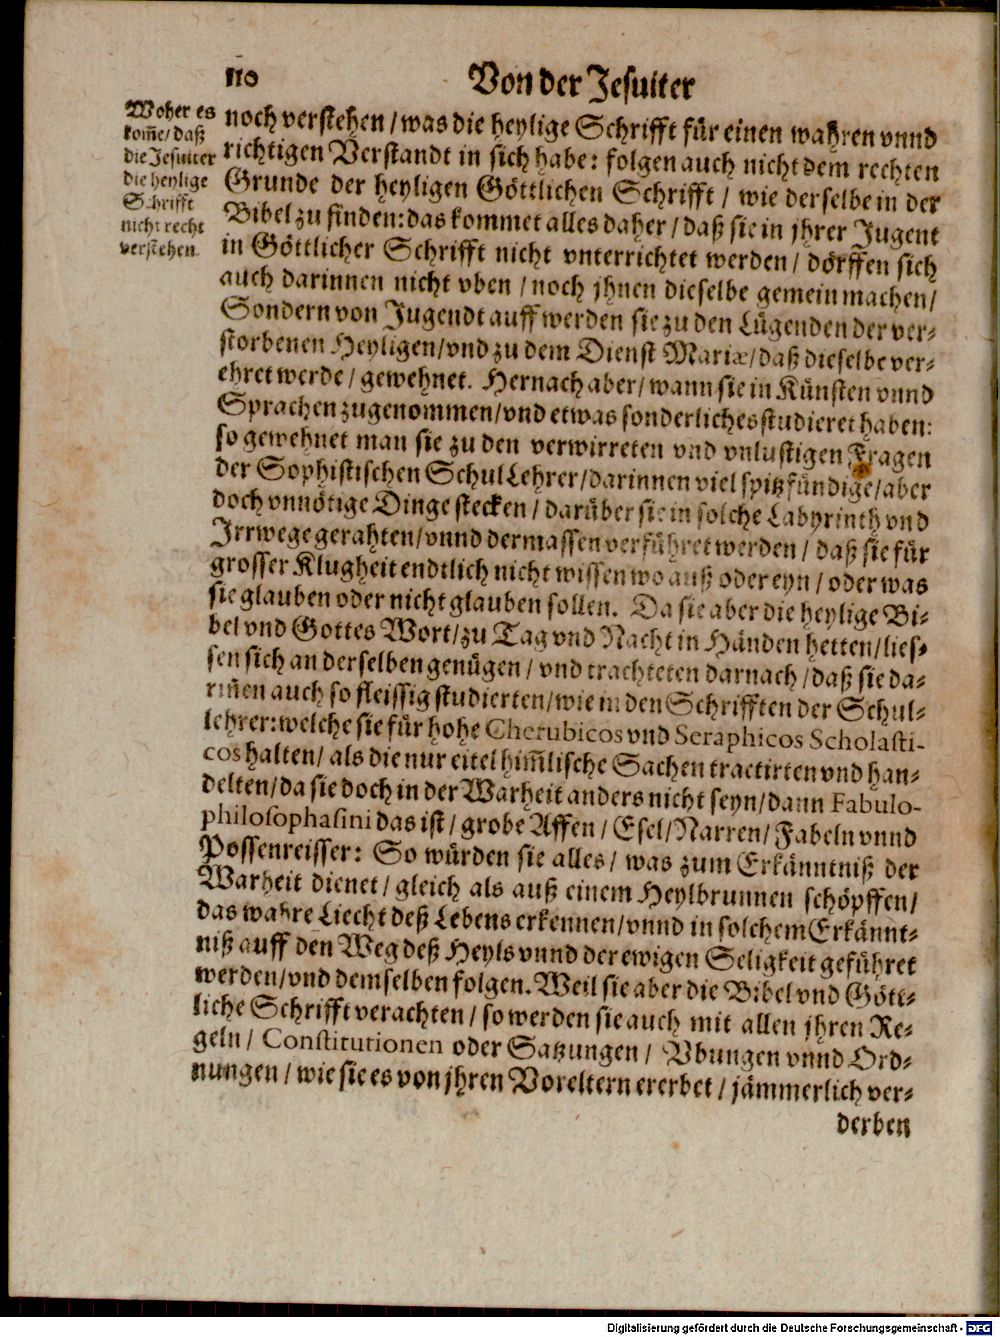 110
Von der Jesuiter
Woher es
kom̃e/ daß
die Jesuiter
die heylige
Schrifft
nicht recht
verstehen.
noch verstehen / was die heylige Schrifft für einen wahren vnnd
richtigen Verstandt in sich habe: folgen auch nicht dem rechten
Grunde der heyligen Göttlichen Schrifft / wie derselbe in der
Bibel zu finden: das kommet alles daher / daß sie in jhrer Jugent
in Göttlicher Schrifft nicht vnterrichtet werden / dörffen sich
auch darinnen nicht vben / noch jhnen dieselbe gemein machen /
Sondern von Jugendt auff werden sie zu den Lügenden der ver-
storbenen Heyligen/ vnd zu dem Dienst Mariæ/ daß dieselbe ver-
ehret werde / gewehnet. Hernach aber / wann sie in Künsten vnnd
Sprachen zugenommen/ vnd etwas sonderliches studieret haben:
so gewehnet man sie zu den verwirreten vnd vnlustigen Fragen
der Sophistischen SchulLehrer/ darinnen viel spitzfündige/ aber
doch vnnötige Dinge stecken / darüber sie in solche Labyrinth vnd
Irrwege gerahten/ vnnd dermassen verführet werden / daß sie für
grosser Klugheit endtlich nicht wissen wo auß oder eyn / oder was
sie glauben oder nicht glauben sollen. Da sie aber die heylige Bi-
bel vnd Gottes Wort/ zu Tag vnd Nacht in Händen hetten/ lies-
sen sich an derselben genügen / vnd trachteten darnach / daß sie da-
riñen auch so fleissig studierten/ wie in den Schrifften der Schul-
lehrer: welche sie für hohe Cherubicos vnd Seraphicos Scholasti-
cos halten/ als die nur eitel him̃lische Sachen tractirten vnd han-
delten/ da sie doch in der Warheit anders nicht seyn/ dann Fabulo-
philosophasini das ist / grobe Affen / Esel/ Narren/ Fabeln vnnd
Possenreisser: So würden sie alles / was zum Erkänntniß der
Warheit dienet / gleich als auß einem Heylbrunnen schöpffen /
das wahre Liecht deß Lebens erkennen/ vnnd in solchem Erkännt-
niß auff den Weg deß Heyls vnnd der ewigen Seligkeit geführet
werden/ vnd demselben folgen. Weil sie aber die Bibel vnd Gött-
liche Schrifft verachten / so werden sie auch mit allen jhren Re-
geln / Constitutionen oder Satzungen / Vbungen vnnd Ord-
nungen / wie sie es von jhren Voreltern ererbet / jämmerlich ver-
derben
Digitalisierung gefördert durch die Deutsche Forschungsgemeinschaft - DFG